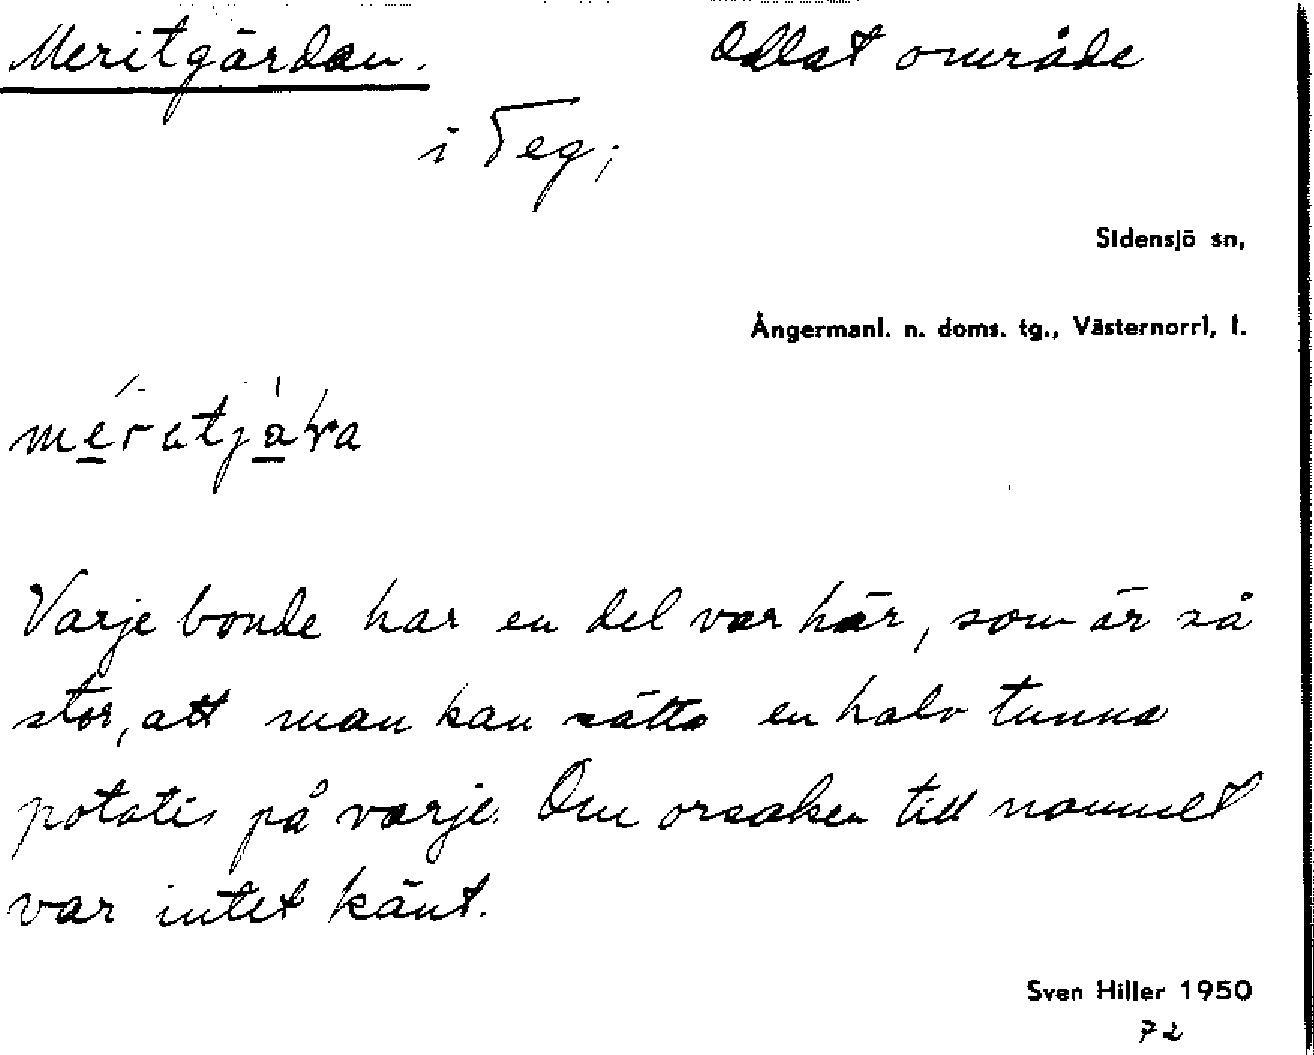 Meritgärdan. Odlat område
i Teg;
Sidensjö sn,
Ångermanl. n. doms. tg., Västernorrl, l.
Varje bonde har en del var här, som är så
stor, att man kan sätta en halv tunna
potatis på varje. Om orsaken till namnet
var intet känt.
Sven Hiller 1950
72